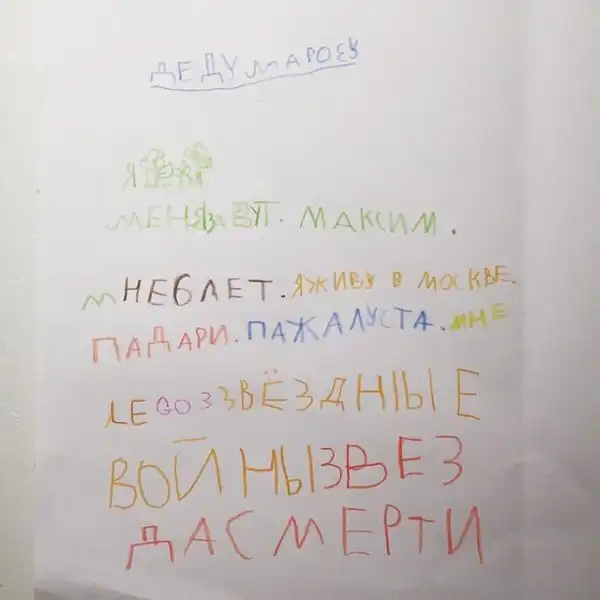 ДЕДУ МАРОЗУ
Я
МЕНЯ ЗА ВУТ. МАКСИМ.
МНЕ 6 ЛЕТ. Я ЖИВУ В МОСКВЕ.
ПАДАРИ. ПАЖАЛУСТА. МНЕ
LEGO ЗЗВЁЗДНЫЕ
ВОЙНЫ ЗВЕЗ
ДА СМЕРТИ